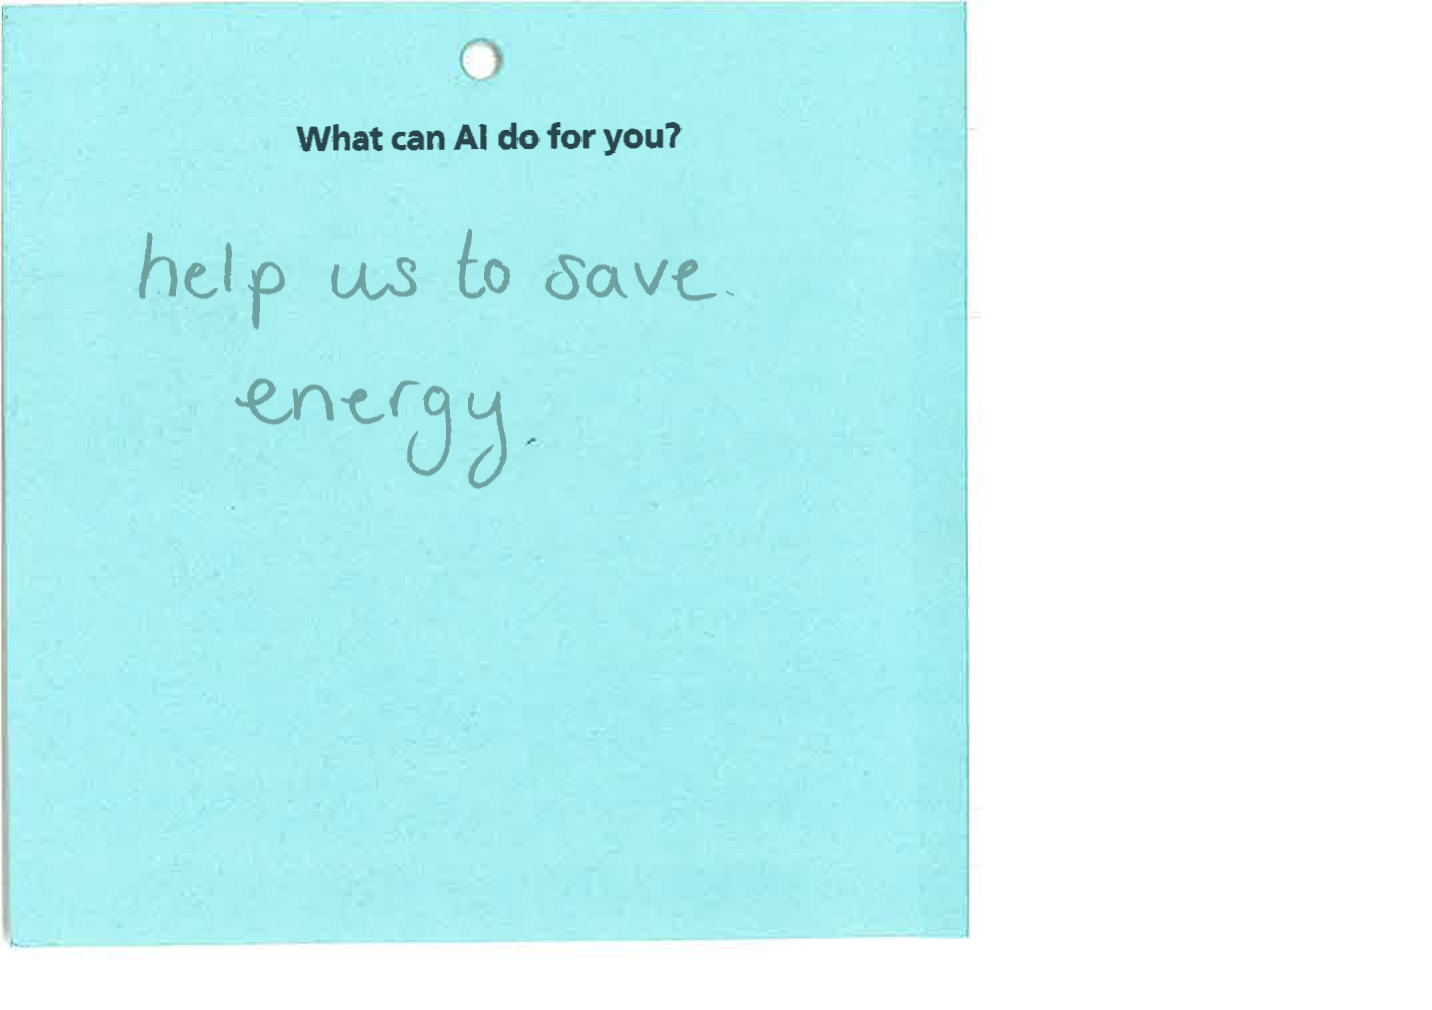 What can AI do for you?
help us to save
energy.